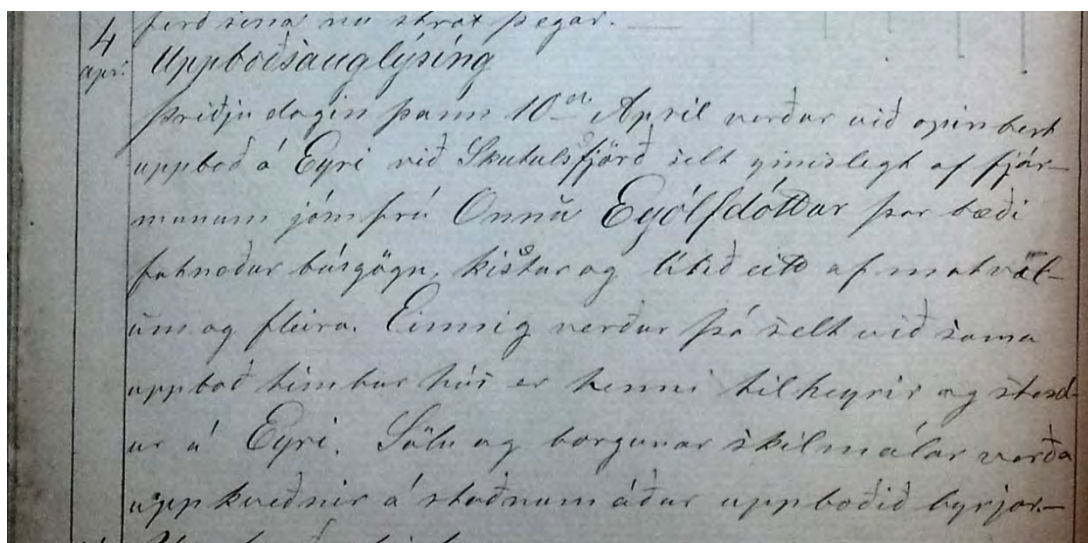 ferð sína nú strax þegar. —
4
apr: Uppboðsauglýsing
þriðjudagin þann 10da Apríl verður við opinbert
uppboð á Eyri við Skutulsfjörð selt ýmislegt af fjár-
munum jómfrú Onnu Ególfdóttur þar bæði
fatnaður búsgögn, kistur og lítið eitt af matvæl-
um og fleira. Einnig verður þá selt við sama
uppboð timbur hús er henni tilheyrir og stend-
ur á Eyri. Sölu og borgunar skilmálar verða
uppkveðnir á staðnum áður uppboðið byrjar.—